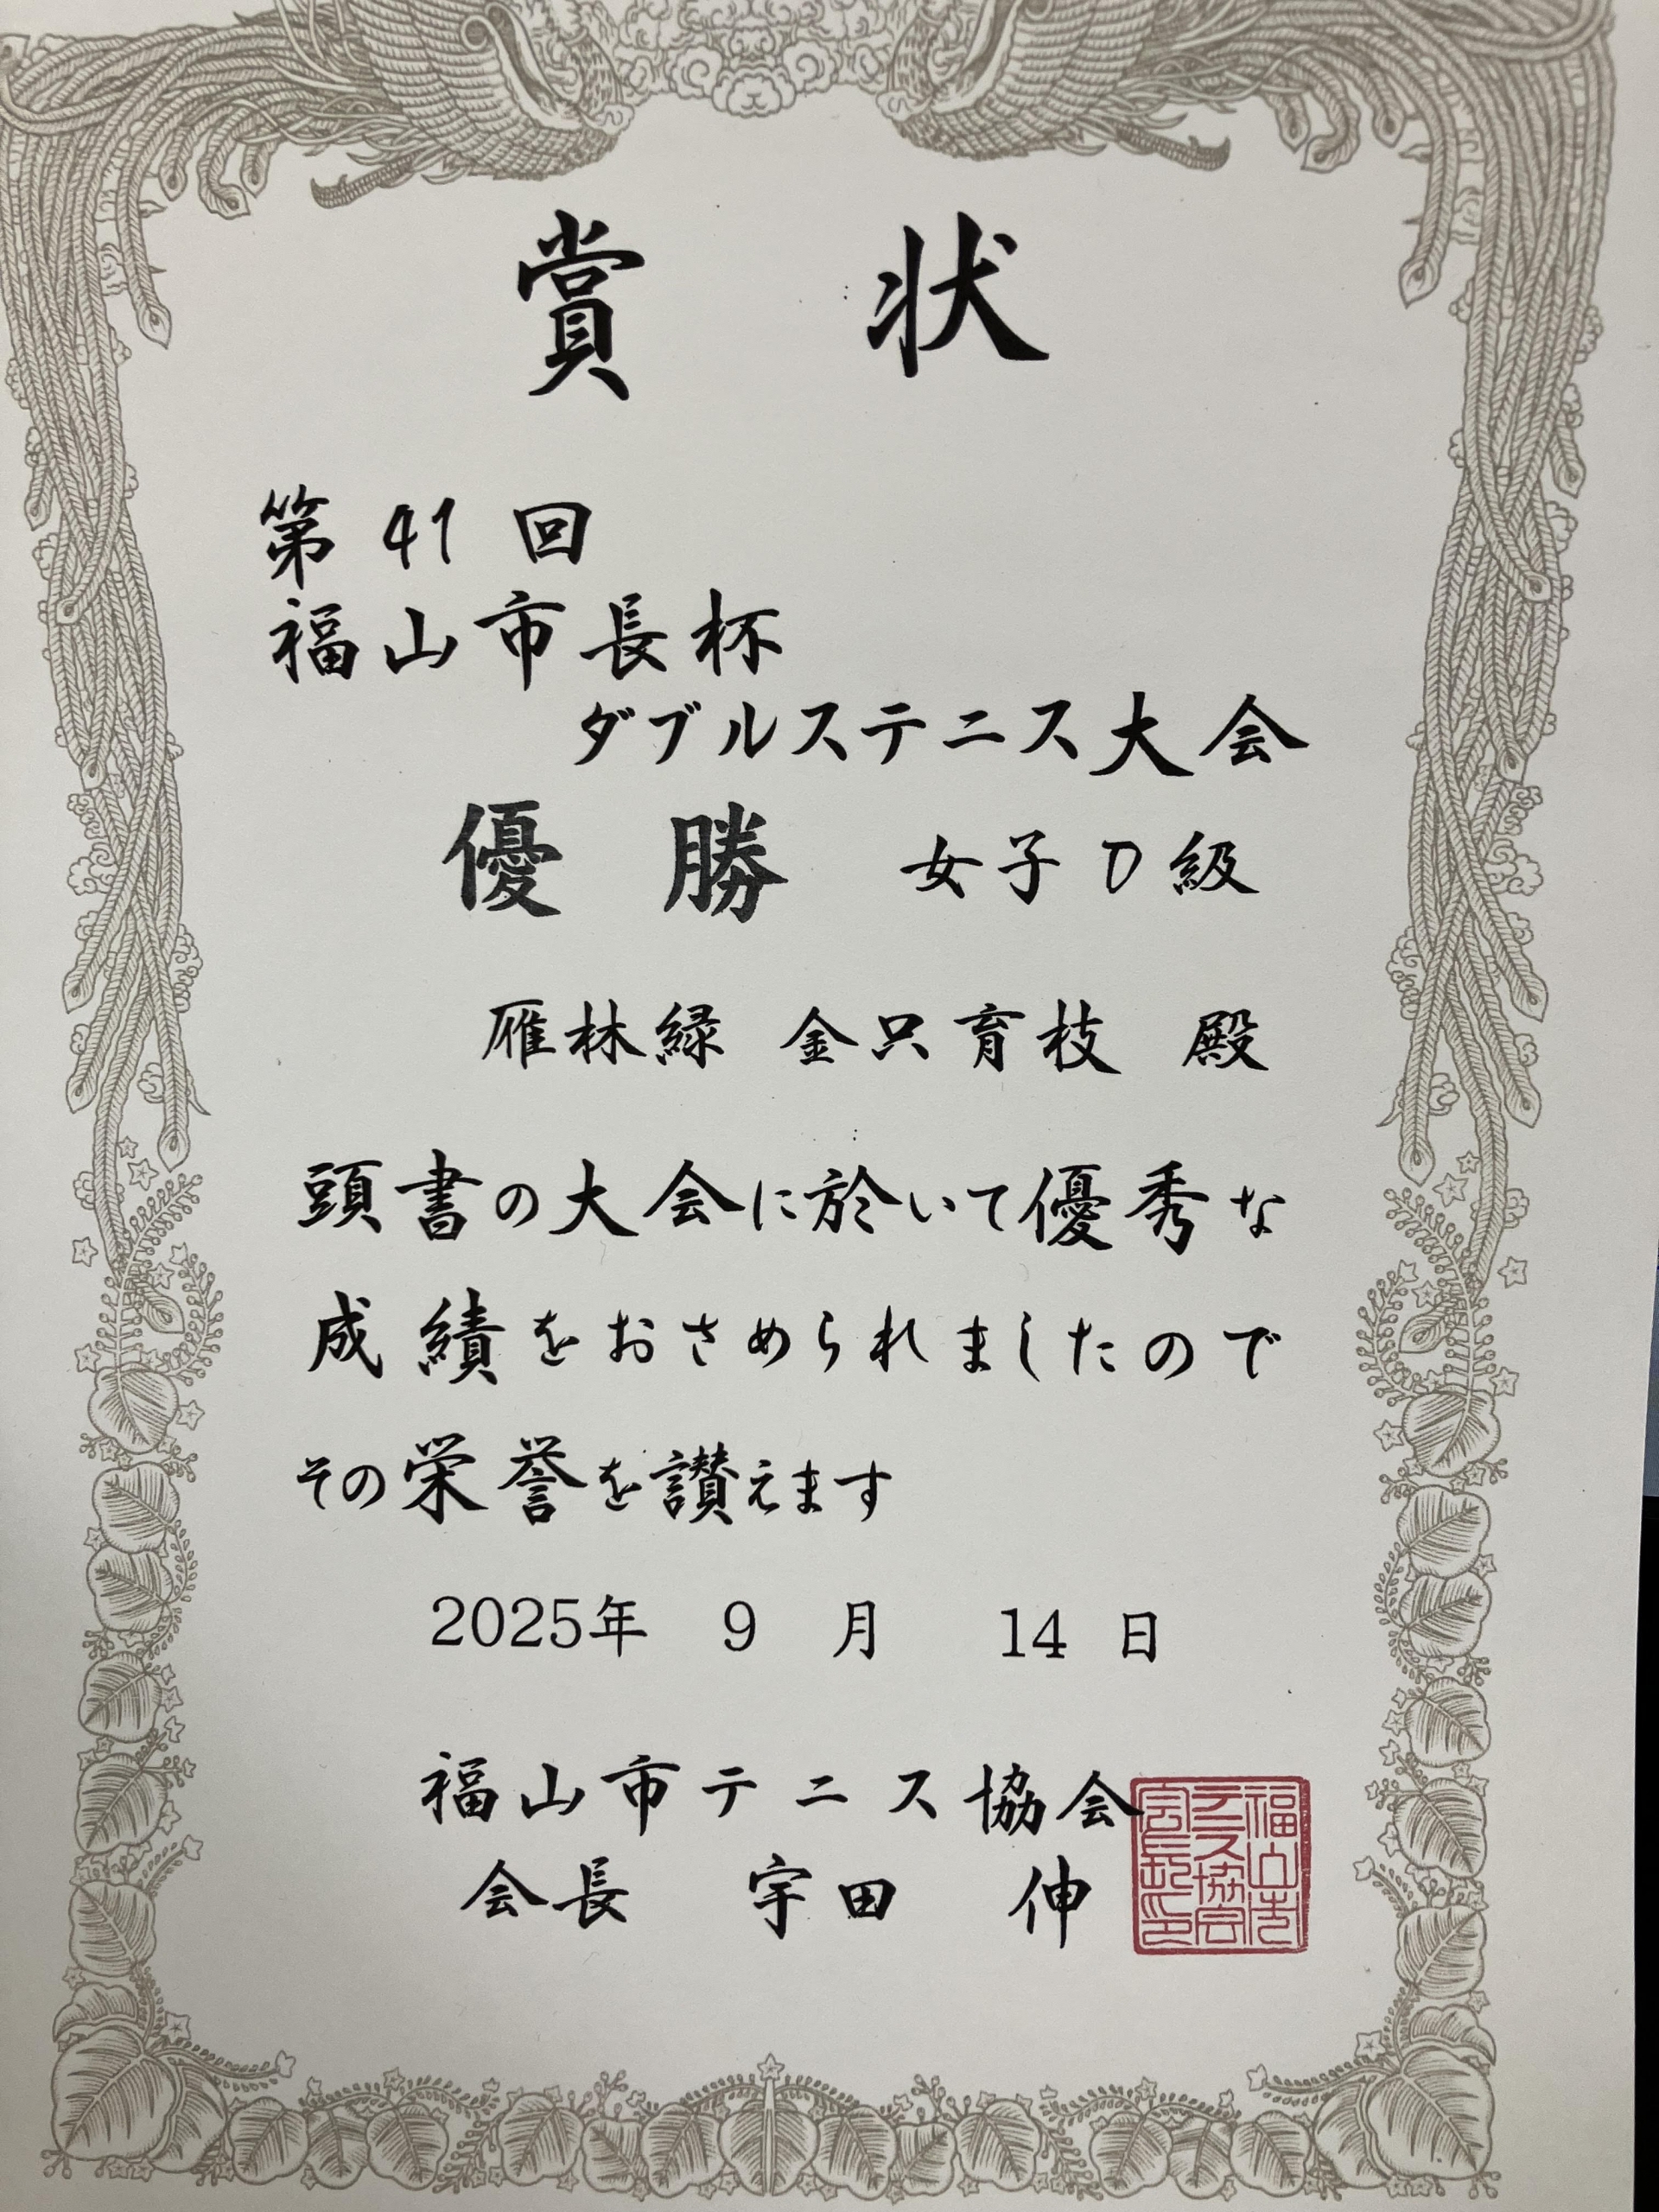 賞状
第41回
福山市長杯
ダブルステニス大会
優勝 女子D級
雁林緑 金只育枝 殿
頭書の大会に於いて優秀な
成績をおさめられましたので
その栄誉を讃えます
2025年 9月 14日
福山市テニス協会
会長 宇田 伸
福山市
テニス協会
会長印